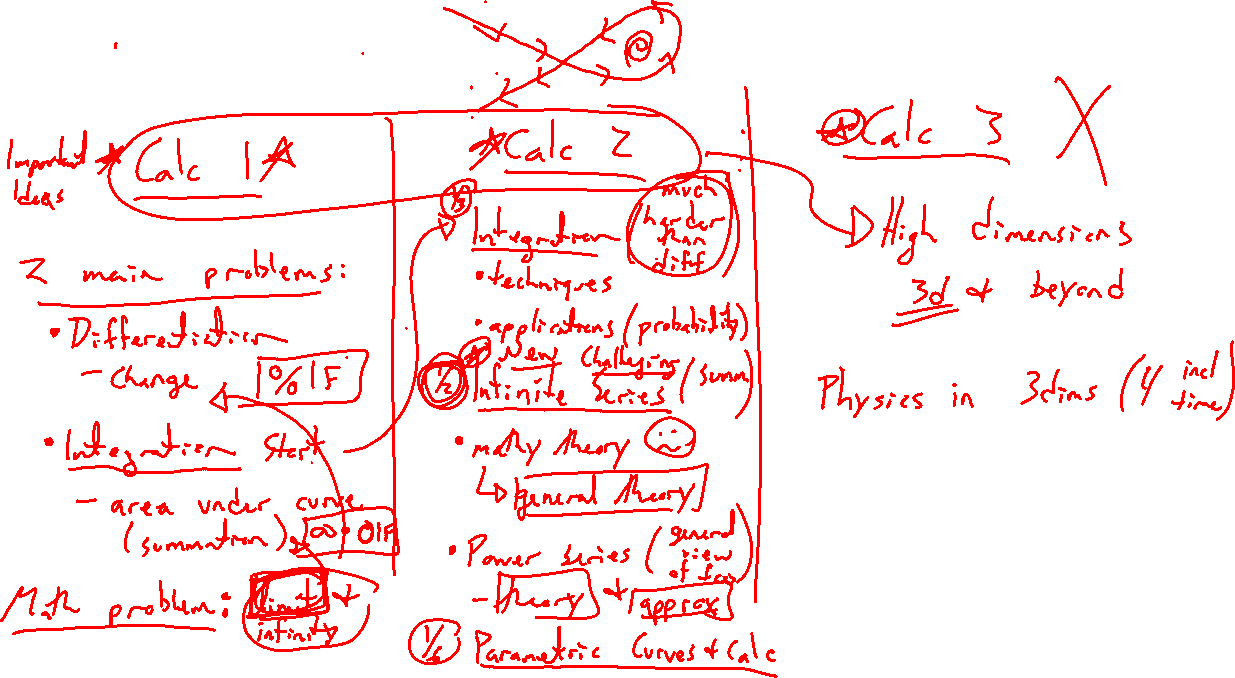 Important
Ideas
Calc 1
2 main problems:
• Differetiation
- change
0/0 IF
• Integration Start
- area under curve
(summation)
∞·0 IF
Math problem: limit &
infinity
Calc 2
1/3
Integration
much
harder
than
diff
• techniques
• applications (probability)
New Challeging
1/2
Infinite Series (summ)
• mathy theory
general theory
• Power series (general
view
of fcn)
- theory & approx
1/6
Parametric Curves & Calc
Calc 3
High dimensions
3d & beyond
Physics in 3dims (4 incl
time)